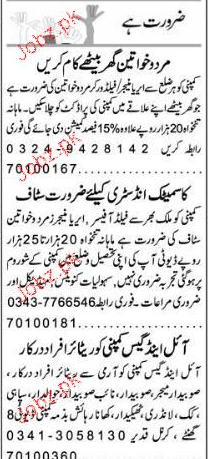 ضرورت ہے
مرد و خواتین گھر بیٹھے کام کریں
کمپنی کو ہر ضلع سے ایریا منیجر / فیلڈ ورکر مرد و خواتین
جو گھر بیٹھے اپنے علاقے میں کمپنی کی پراڈکٹ کو چلا سکیں۔ ماہانہ
تنخواہ 20 ہزار روپے علاوہ %15 فیصد کمیشن دی جائے گی فوری
رابطہ کریں 0324-9428142
70100167
کاسمیٹک انڈسٹری کیلئے ضرورت سٹاف
کمپنی کو ملک بھر سے فیلڈ آفیسر، ایریا منیجرز مرد و خواتین
سٹاف کی ضرورت ہے ماہانہ تنخواہ 20 ہزار تا 25 ہزار
روپے ڈیوٹی آپ کی اپنی تحصیل و ضلع میں کمپنی کے شوروم
پر ہوگی تجربہ ضروری نہیں۔ سہولیات کنوینس، میڈیکل اور
ضروری مراعات فوری رابطہ۔ 0343-7766546
70100181
آئل اینڈ گیس کمپنی کو ریٹائر افراد درکار
آئل اینڈ گیس کمپنی کو آرمی سے ریٹائر افراد درکار،
صوبیدار میجر، صوبیدار، نائب صوبیدار، حوالدار، سپاہی
، کک، لانڈری، ٹھیکیدار، کھانا رہائش بذمہ کمپنی ڈیوٹی 8
گھنٹے، کرنل قدیر 0341-3058130
70100360
Jobz.pk
Jobz.pk